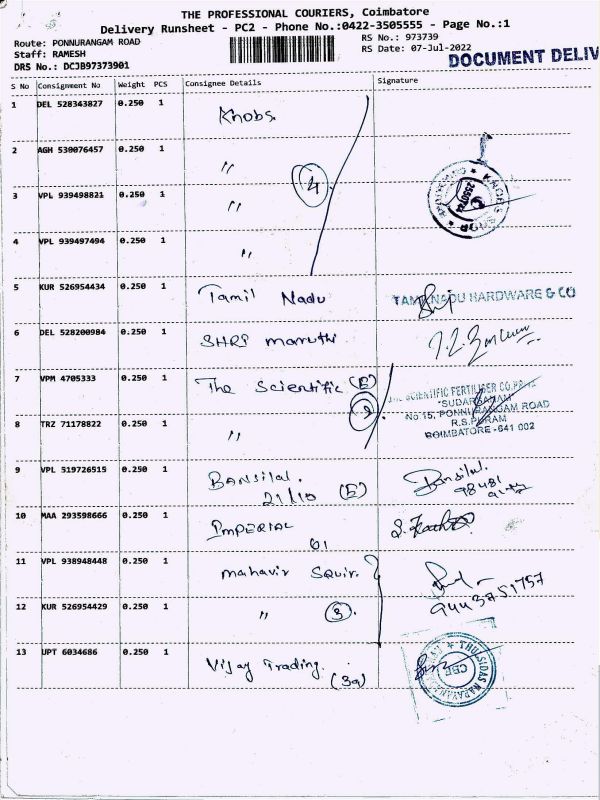 THE PROFESSIONAL COURIERS, Coimbatore
Delivery Runsheet - PC2 - Phone No.:0422-3505555 - Page No.:1
Route: PONNURANGAM ROAD
RS No.: 973739
Staff: RAMESH
RS Date: 07-Jul-2022
DRS No.: DCJB97373901
DOCUMENT DELIV
S No Consignment No Weight PCS Consignee Details Signature
1 DEL 528343827 0.250 1 Knobs
2 AGH 530076457 0.250 1 "
4
3 VPL 939498821 0.250 1 "
4 VPL 939497494 0.250 1 "
5 KUR 526954434 0.250 1 Tamil Nadu TAMILNADU HARDWARE & CO
6 DEL 528200984 0.250 1 SHRI maruthi
7 VPM 4705333 0.250 1 The Scientific (E)
THE SCIENTIFIC FERTILISER CO.PVT.LTD
"SUDARSANAM"
No 15, PONNURANGAM ROAD
R.S.PURAM
COIMBATORE - 641 002
8 TRZ 71178822 0.250 1 "
9 VPL 519726515 0.250 1 BANSILAL. Bansilal.
21/10 (E) 98481
10 MAA 293598666 0.250 1 IMPERIAL
61
11 VPL 938948448 0.250 1 Mahavir Squir.
9443751757
12 KUR 526954429 0.250 1 " 3.
13 UPT 6034686 0.250 1 Vijay Trading.
(39)
THULSIDAS NARAYANDAS
CBE